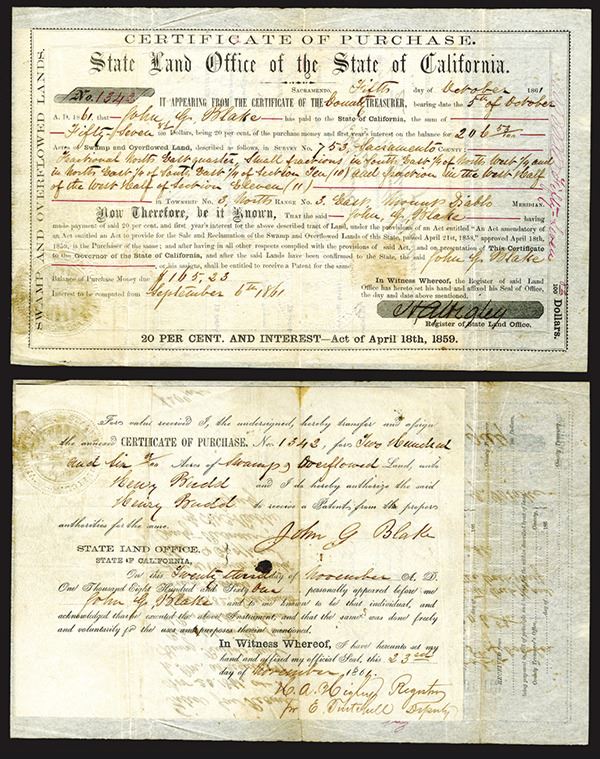 CERTIFICATE OF PURCHASE.
State Land Office of the State of California.
SWAMP AND OVERFLOWED LANDS.
No. 1542
SACRAMENTO, Fifth day of October 1861
IT APPEARING FROM THE CERTIFICATE OF THE County TREASURER, bearing date the 5th of October
A. D. 1861 that John G. Blake has paid to the State of California, the sum of
Fifty-Seven Dollars, being 20 per cent. of the purchase money and first year's interest on the balance for 206 53/100
Acres of Swamp and Overflowed Land, described, as follows, in SURVEY No. 753, Sacramento COUNTY:
Fractional North East quarter, Small fractions in South East 1/4 of North West 1/4 and
in North East 1/4 of South East 1/4 of Section Ten (10) and fraction in the West Half
of the West Half of Section Eleven (11)
in TOWNSHIP No. 3, North RANGE No. 3, East, Mount Diablo MERIDIAN.
Now Therefore, be it Known, That the said John, G, Blake having
made payment of 20 per cent. and first year's interest for the above described tract of Land, under the provisions of an Act entitled "An Act amendatory of
an Act entitled an Act to provide for the Sale and Reclamation of the Swamp and Overflowed Lands of this State, passed April 21st, 1858," approved April 18th,
1859, is the Purchaser of the same; and after having in all other respects complied with the provisions of said Act, and on presentation of This Certificate
to the Governor of the State of California, and after the said Lands have been confirmed to the State, the said John G. Blake
or his assigns, shall be entitled to receive a Patent for the same.
Balance of Purchase Money due $165,23
Interest to be computed from September 6th 1861
In Witness Whereof, the Register of said Land
Office has hereto set his hand and affixed his Seal of Office,
the day and date above mentioned.
H. A. Higley
Register of State Land Office.
100 Dollars.
20 PER CENT. AND INTEREST—Act of April 18th, 1859.
For value received I, the undersigned, hereby transfer and assign
the annexed CERTIFICATE OF PURCHASE, No. 1542, for Two Hundred
and Six Acres of Swamp & Overflowed Land, unto
Henry Budd and I do hereby authorize the said
Henry Budd to receive a Patent from the proper
authorities for the same.
John G Blake
STATE LAND OFFICE.
STATE OF CALIFORNIA,
On this Twenty third day of November A. D.
One Thousand Eight Hundred and Sixty One personally appeared before me
John G. Blake and to me known to be that individual, and
acknowledged that he executed the above Instrument, and that the same was done freely
and voluntarily for the uses and purposes therein mentioned.
In Witness Whereof, I have hereunto set my
hand and affixed my official Seal, this 23rd
day of November, 1861,
H. A. Higley Register
pr E. Twitchell Deputy